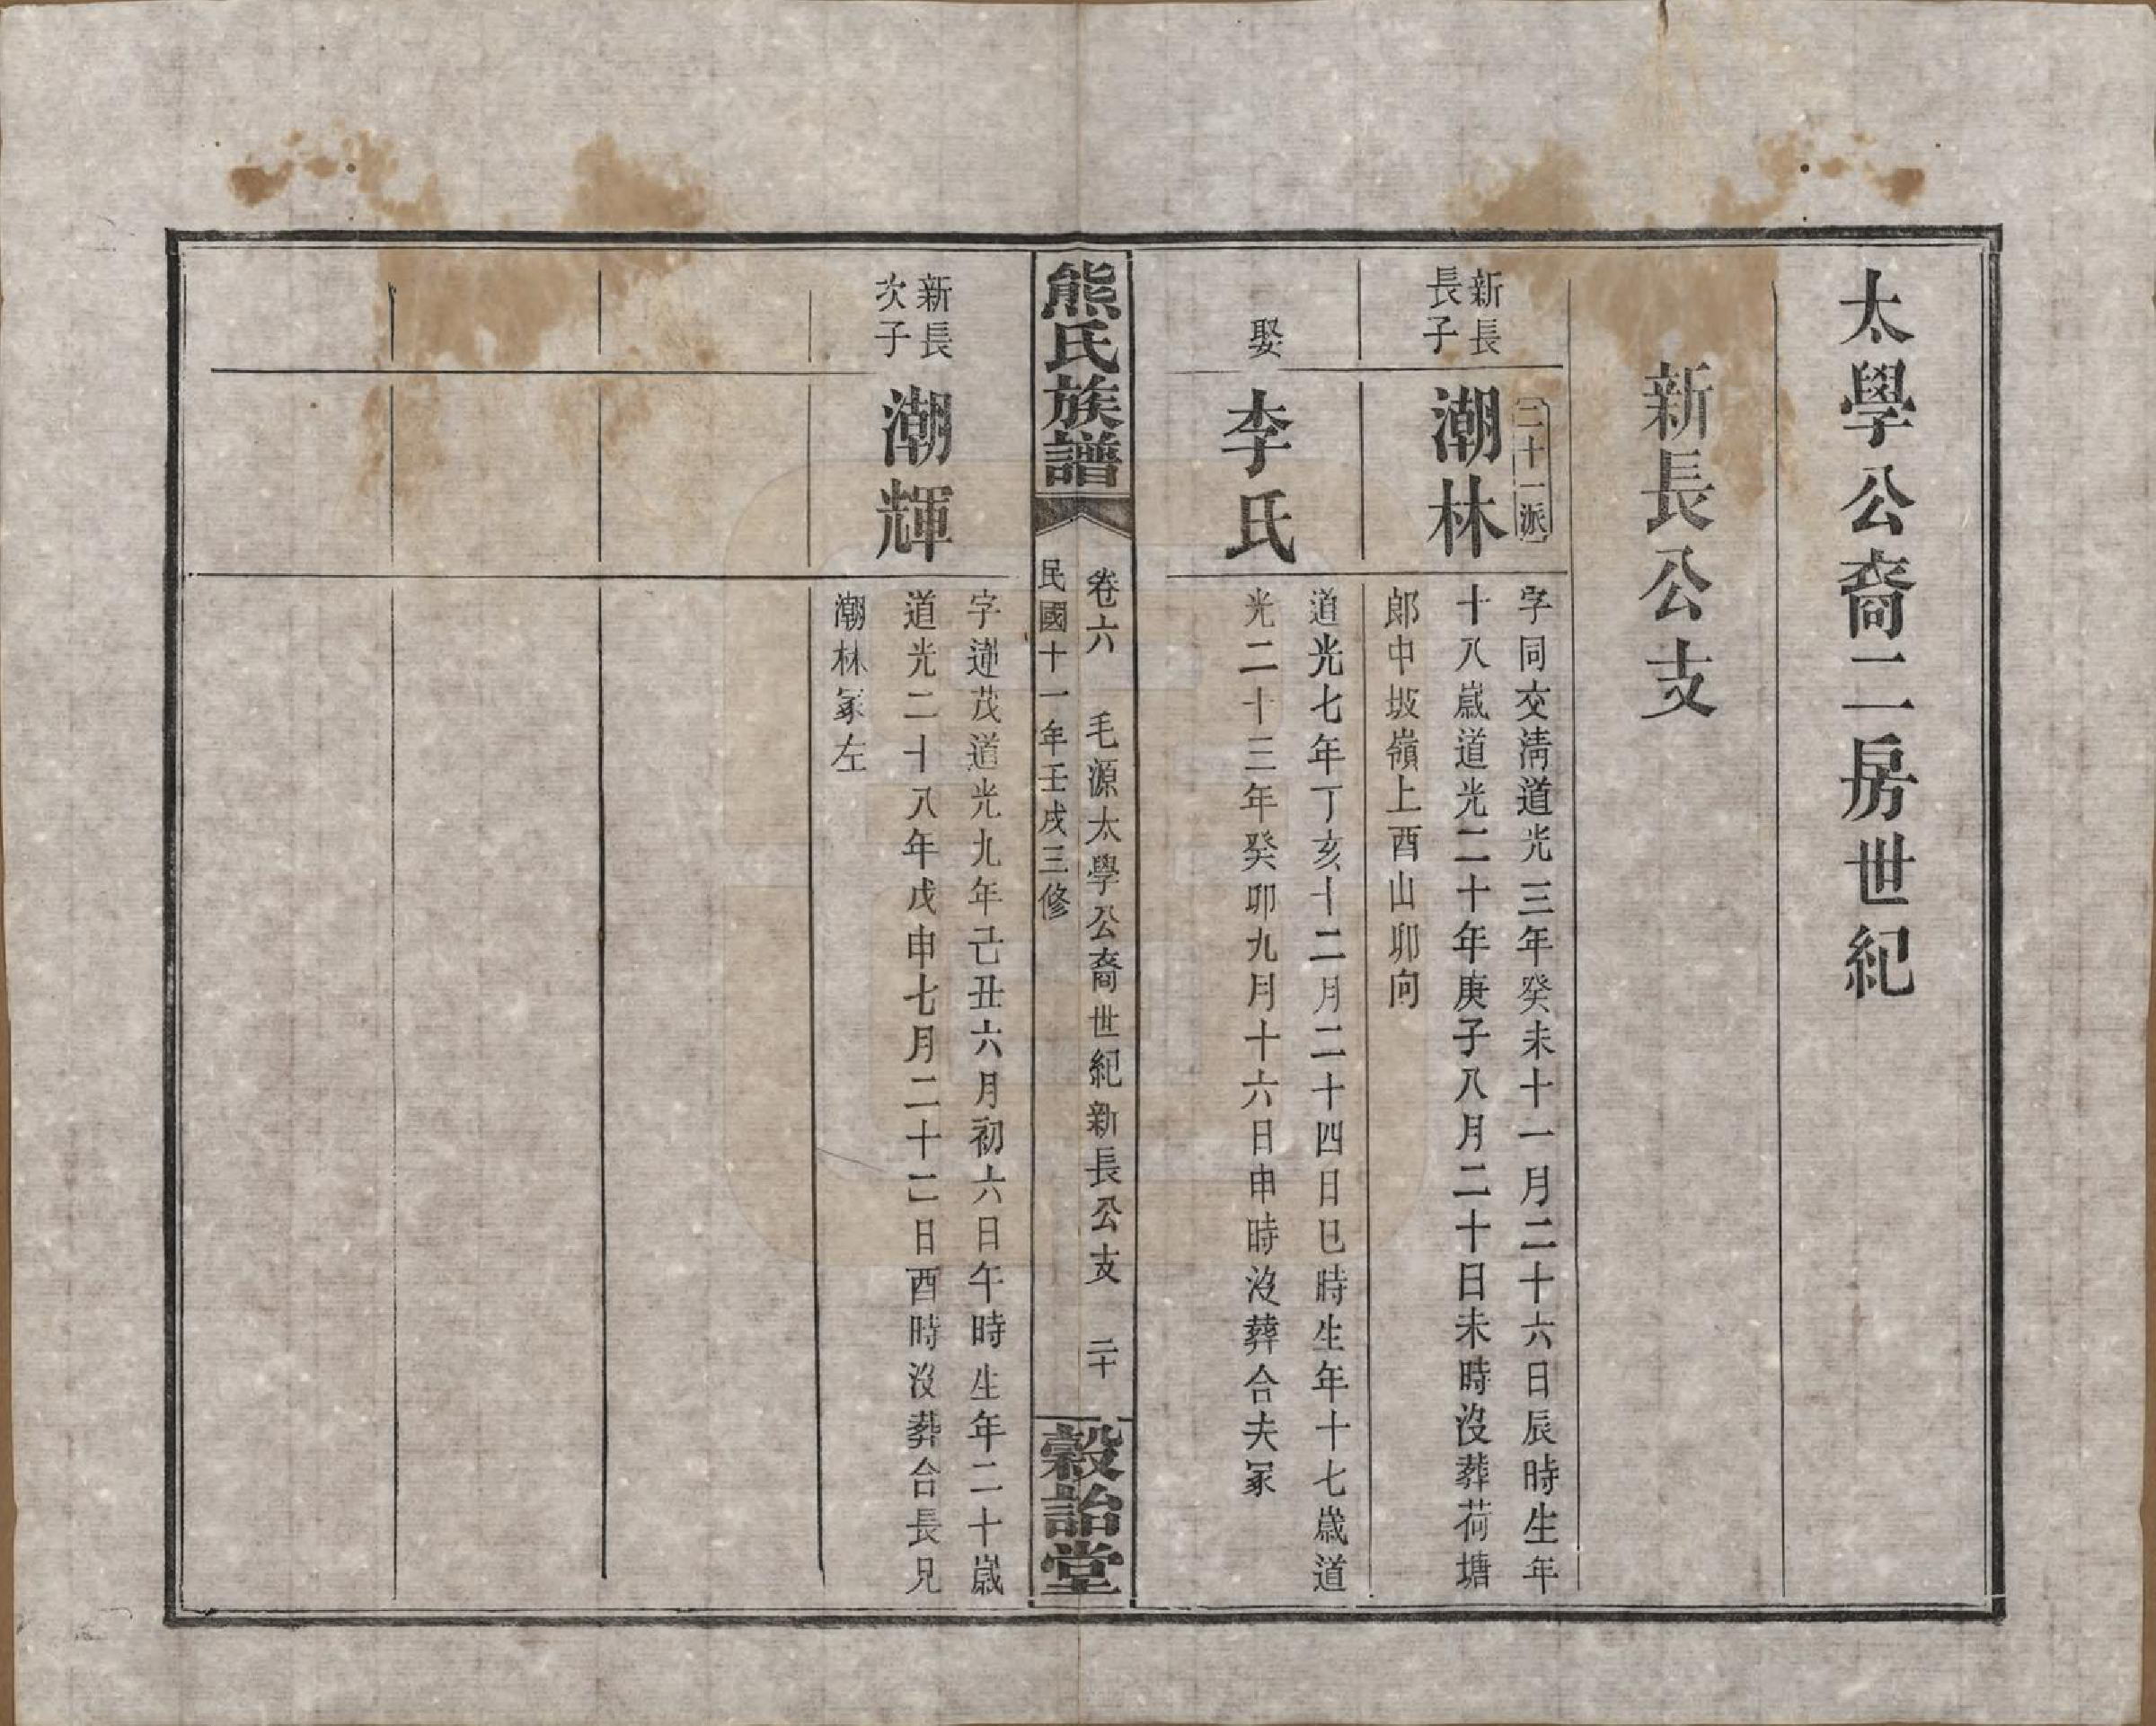 太學公裔二房世紀
新長公支
新長
長子
三十一派
潮林
字同交清道光三年癸未十一月二十六日辰時生年
十八歲道光二十年庚子八月二十日未時沒葬荷塘
郎中坂嶺上酉山卯向
娶
李氏
道光七年丁亥十二月二十四日巳時生年十七歲道
光二十三年癸卯九月十六日申時沒葬合夫冢
熊氏族譜
卷六 毛源太學公裔世紀新長公支 二十
民國十一年壬戌三修
穀詒堂
新長
次子
潮輝
字 茂道光九年己丑六月初六日午時生年二十歲
道光二十八年戊申七月二十二日酉時沒葬合長兄
潮林冢左